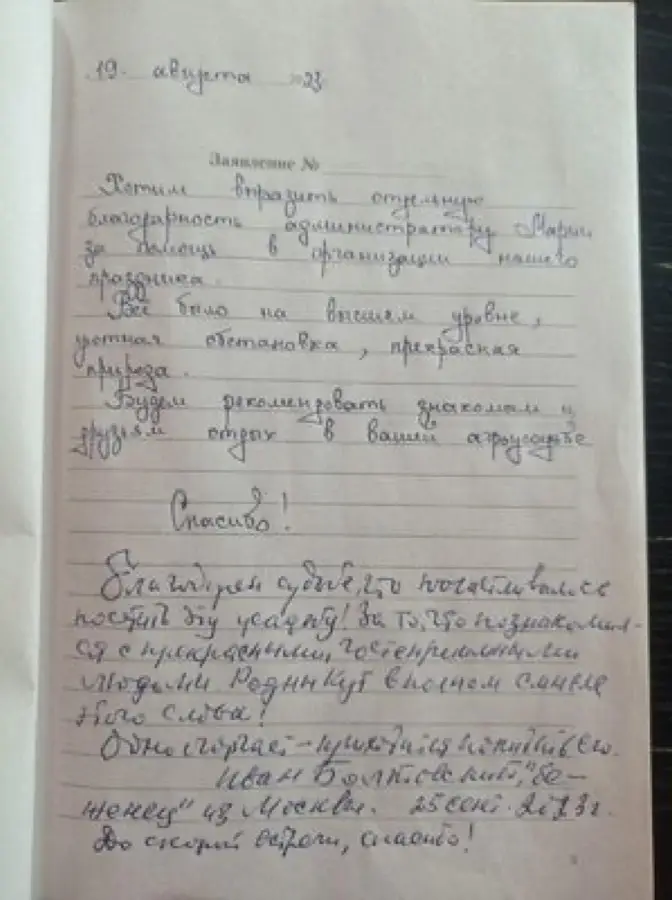 19. августа 23
Заявление №
Хотим выразить отдельную
благодарность администратору Марии
за помощь в организации нашего
праздника.
Всё было на высшем уровне,
уютная обстановка, прекрасная
природа.
Будем рекомендовать знакомым и
друзьям отдых в вашей агроусадьбе
Спасибо!
Благодарен судьбе, что посчастливилось
посетить эту усадьбу! За то, что познакомил-
ся с прекрасными, гостеприимными
людьми. Родны Кут в полном смысле
этого слова!
Одно огорчает - приходится покидать его.
Иван Болтовский, "бе-
женец" из Москвы. 25 сент. 2023 г.
До скорой встречи, спасибо!